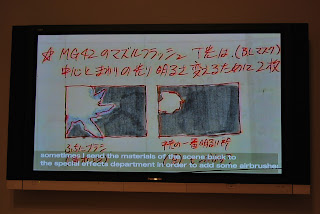 ☆ MG42のマズルフラッシュ 下絵は、(BLマスク)
中心とまわりの光り 明るさを変えるために2枚
sometimes I send the materials of the scene back to
the special effects department in order to add some airbrushes